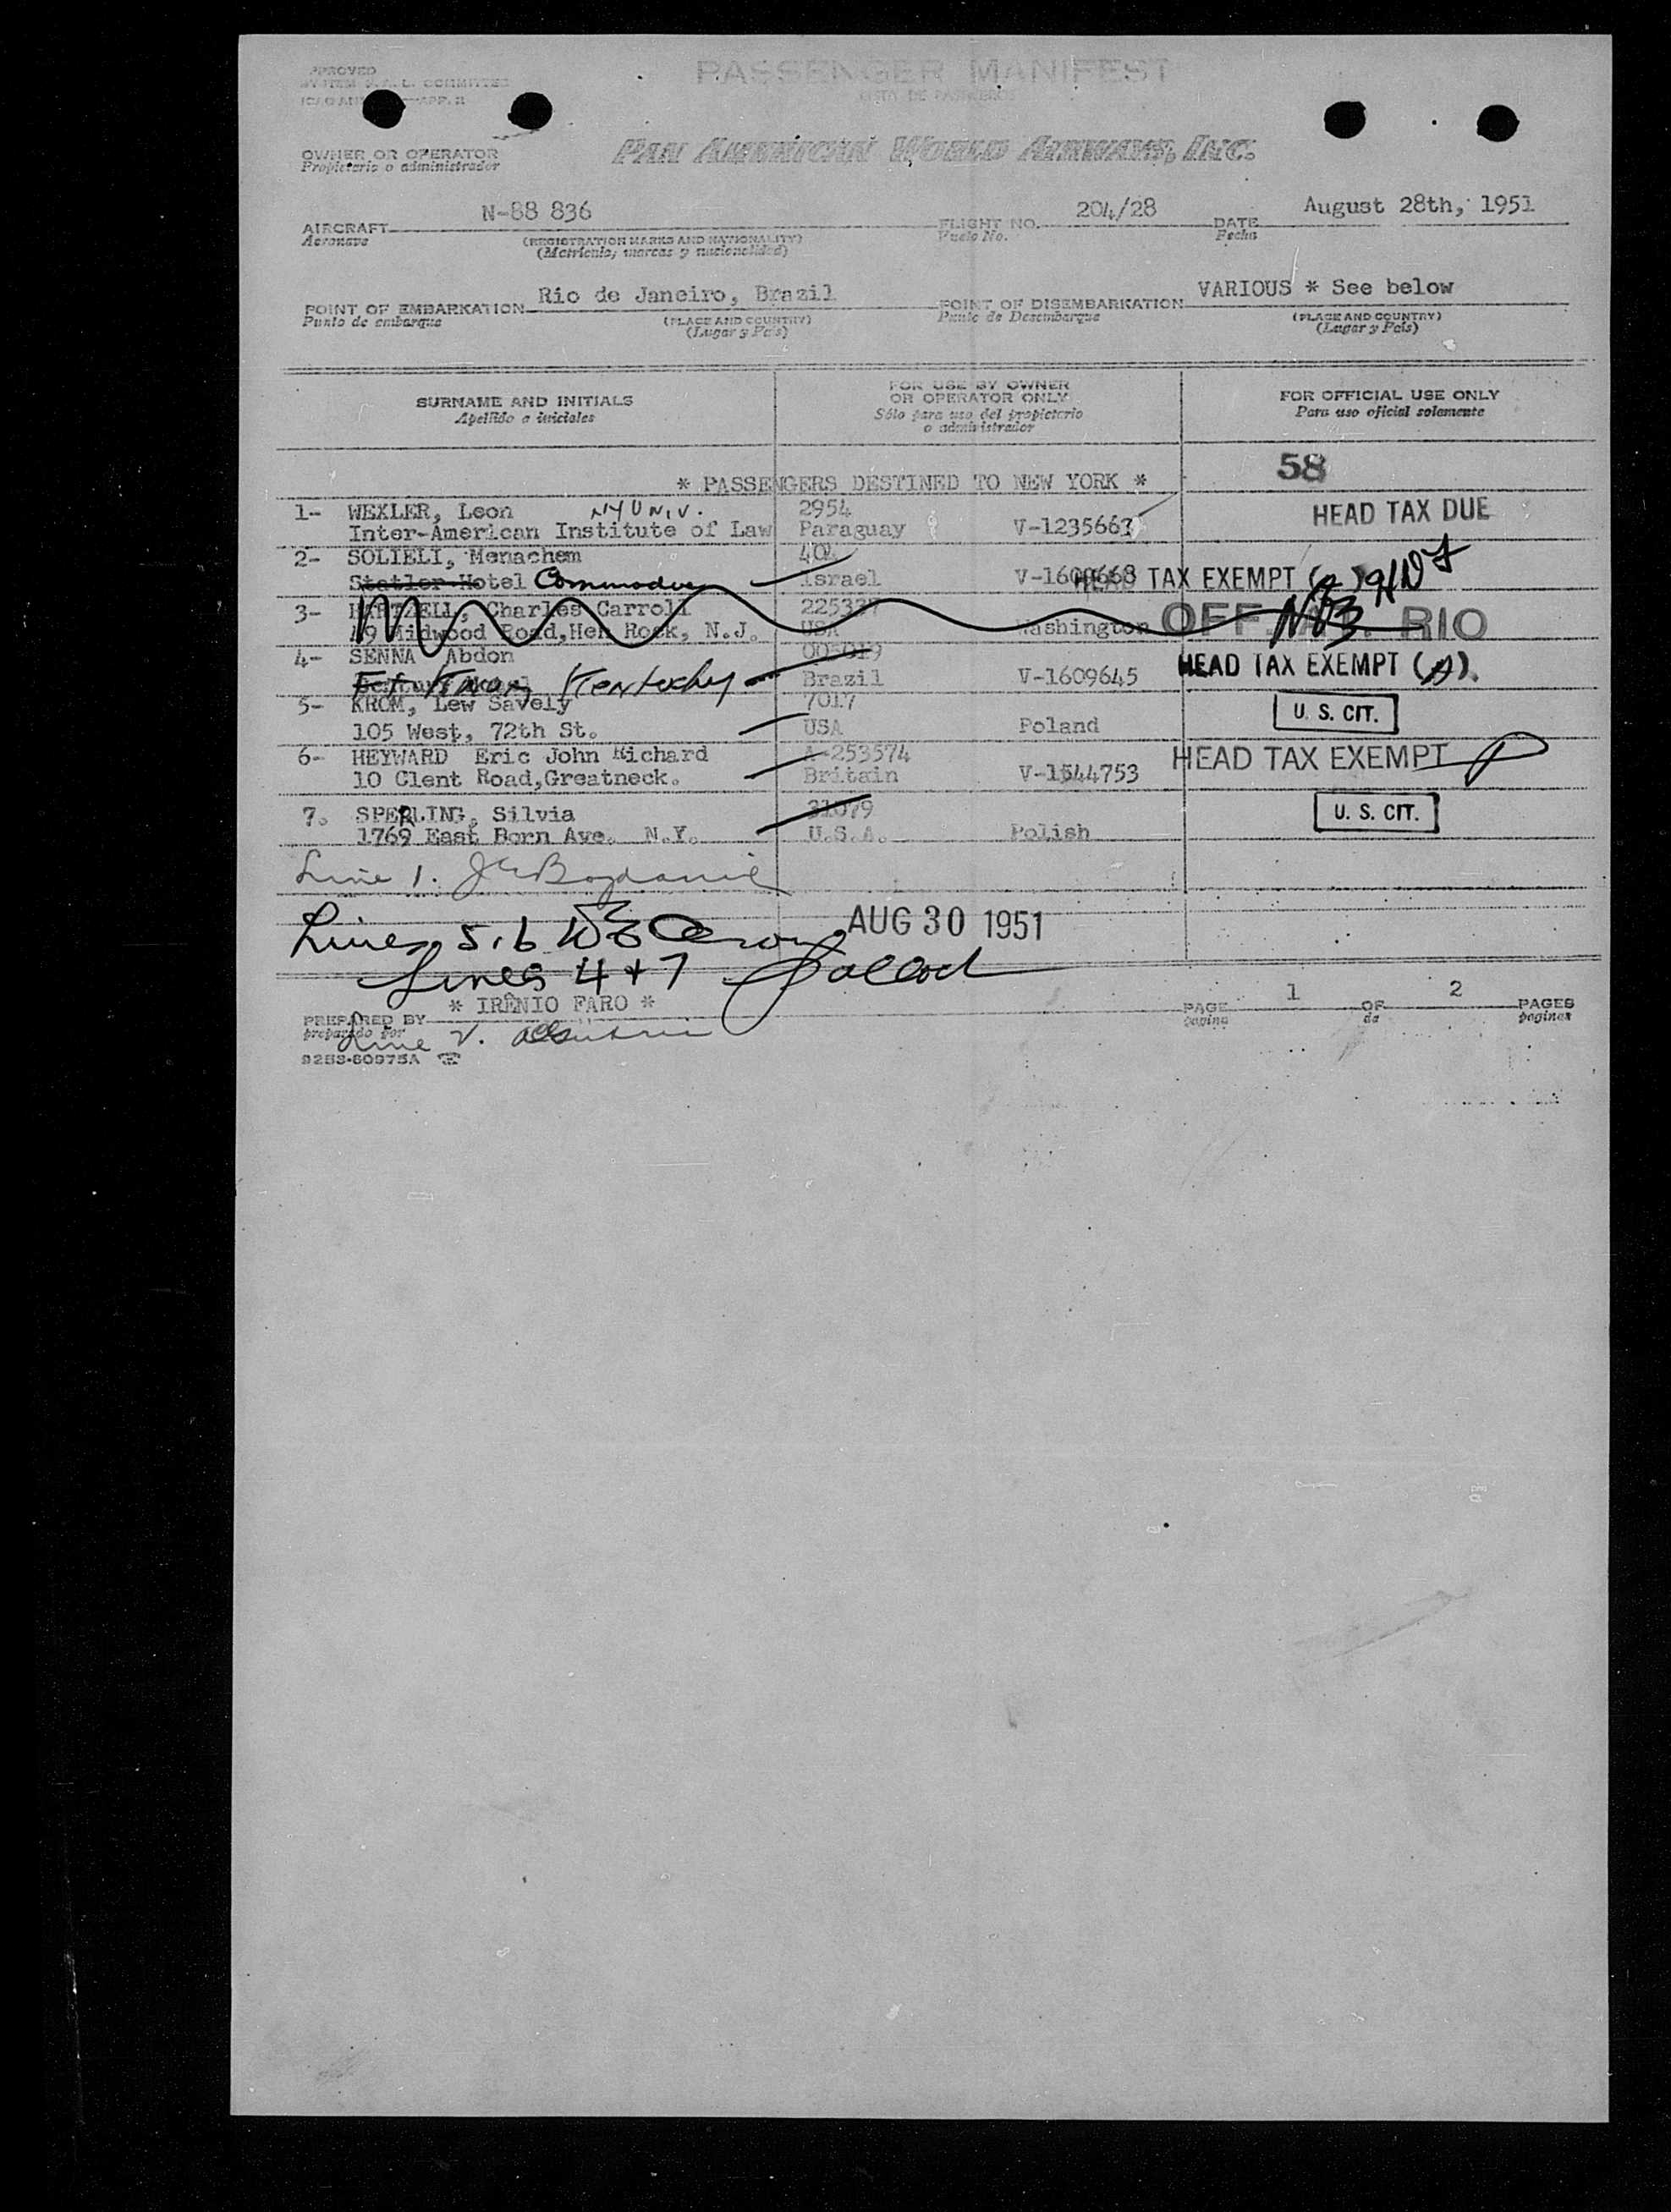 APPROVED
SYSTEM COMMITTEE
PASSENGER MANIFEST
LISTA DE PASAJEROS
OWNER OR OPERATOR
Propietario o administrador
PAN AMERICAN WORLD AIRWAYS, INC.
AIRCRAFT N-88 836 FLIGHT NO. 204/28 DATE August 28th, 1951
Aeronave (REGISTRATION MARKS AND NATIONALITY) Vuelo No. Fecha
(Matrícula, marcas y nacionalidad)
POINT OF EMBARKATION Rio de Janeiro, Brazil POINT OF DISEMBARKATION VARIOUS * See below
Punto de embarque (PLACE AND COUNTRY) Punto de Desembarque (PLACE AND COUNTRY)
(Lugar y País) (Lugar y País)
SURNAME AND INITIALS
Apellido e iniciales
FOR USE BY OWNER
OR OPERATOR ONLY
Sólo para uso del propietario
o administrador
FOR OFFICIAL USE ONLY
Para uso oficial solamente
58
* PASSENGERS DESTINED TO NEW YORK *
1- WEXLER, Leon NY UNIV. 2954 HEAD TAX DUE
Inter-American Institute of Law Paraguay V-1235663
2- SOLIELI, Menachem 404
Statler Hotel Commodore Israel V-1600668 HEAD TAX EXEMPT
3- Charles Carroll 225337
49 Midwood Road, Hen Rock, N.J. USA Washington OFF. RIO
4- SENNA Abdon 005019 HEAD TAX EXEMPT (A).
Ft. Knox, Kentucky Brazil V-1609645
5- KROM, Lew Savely 7017 U. S. CIT.
105 West, 72th St. USA Poland
6- HEYWARD Eric John Richard A-253574 HEAD TAX EXEMPT
10 Clent Road,Greatneck. Britain V-1544753
7. SPERLING, Silvia 31079 U. S. CIT.
1769 East Born Ave. N.Y. U.S.A. Polish
Line 1.
Lines 5.6 AUG 30 1951
Lines 4+7
* IRÊNIO FARO * PAGE 1 OF 2 PAGES
PREPARED BY página de páginas
preparado por
Line
9253-60975A